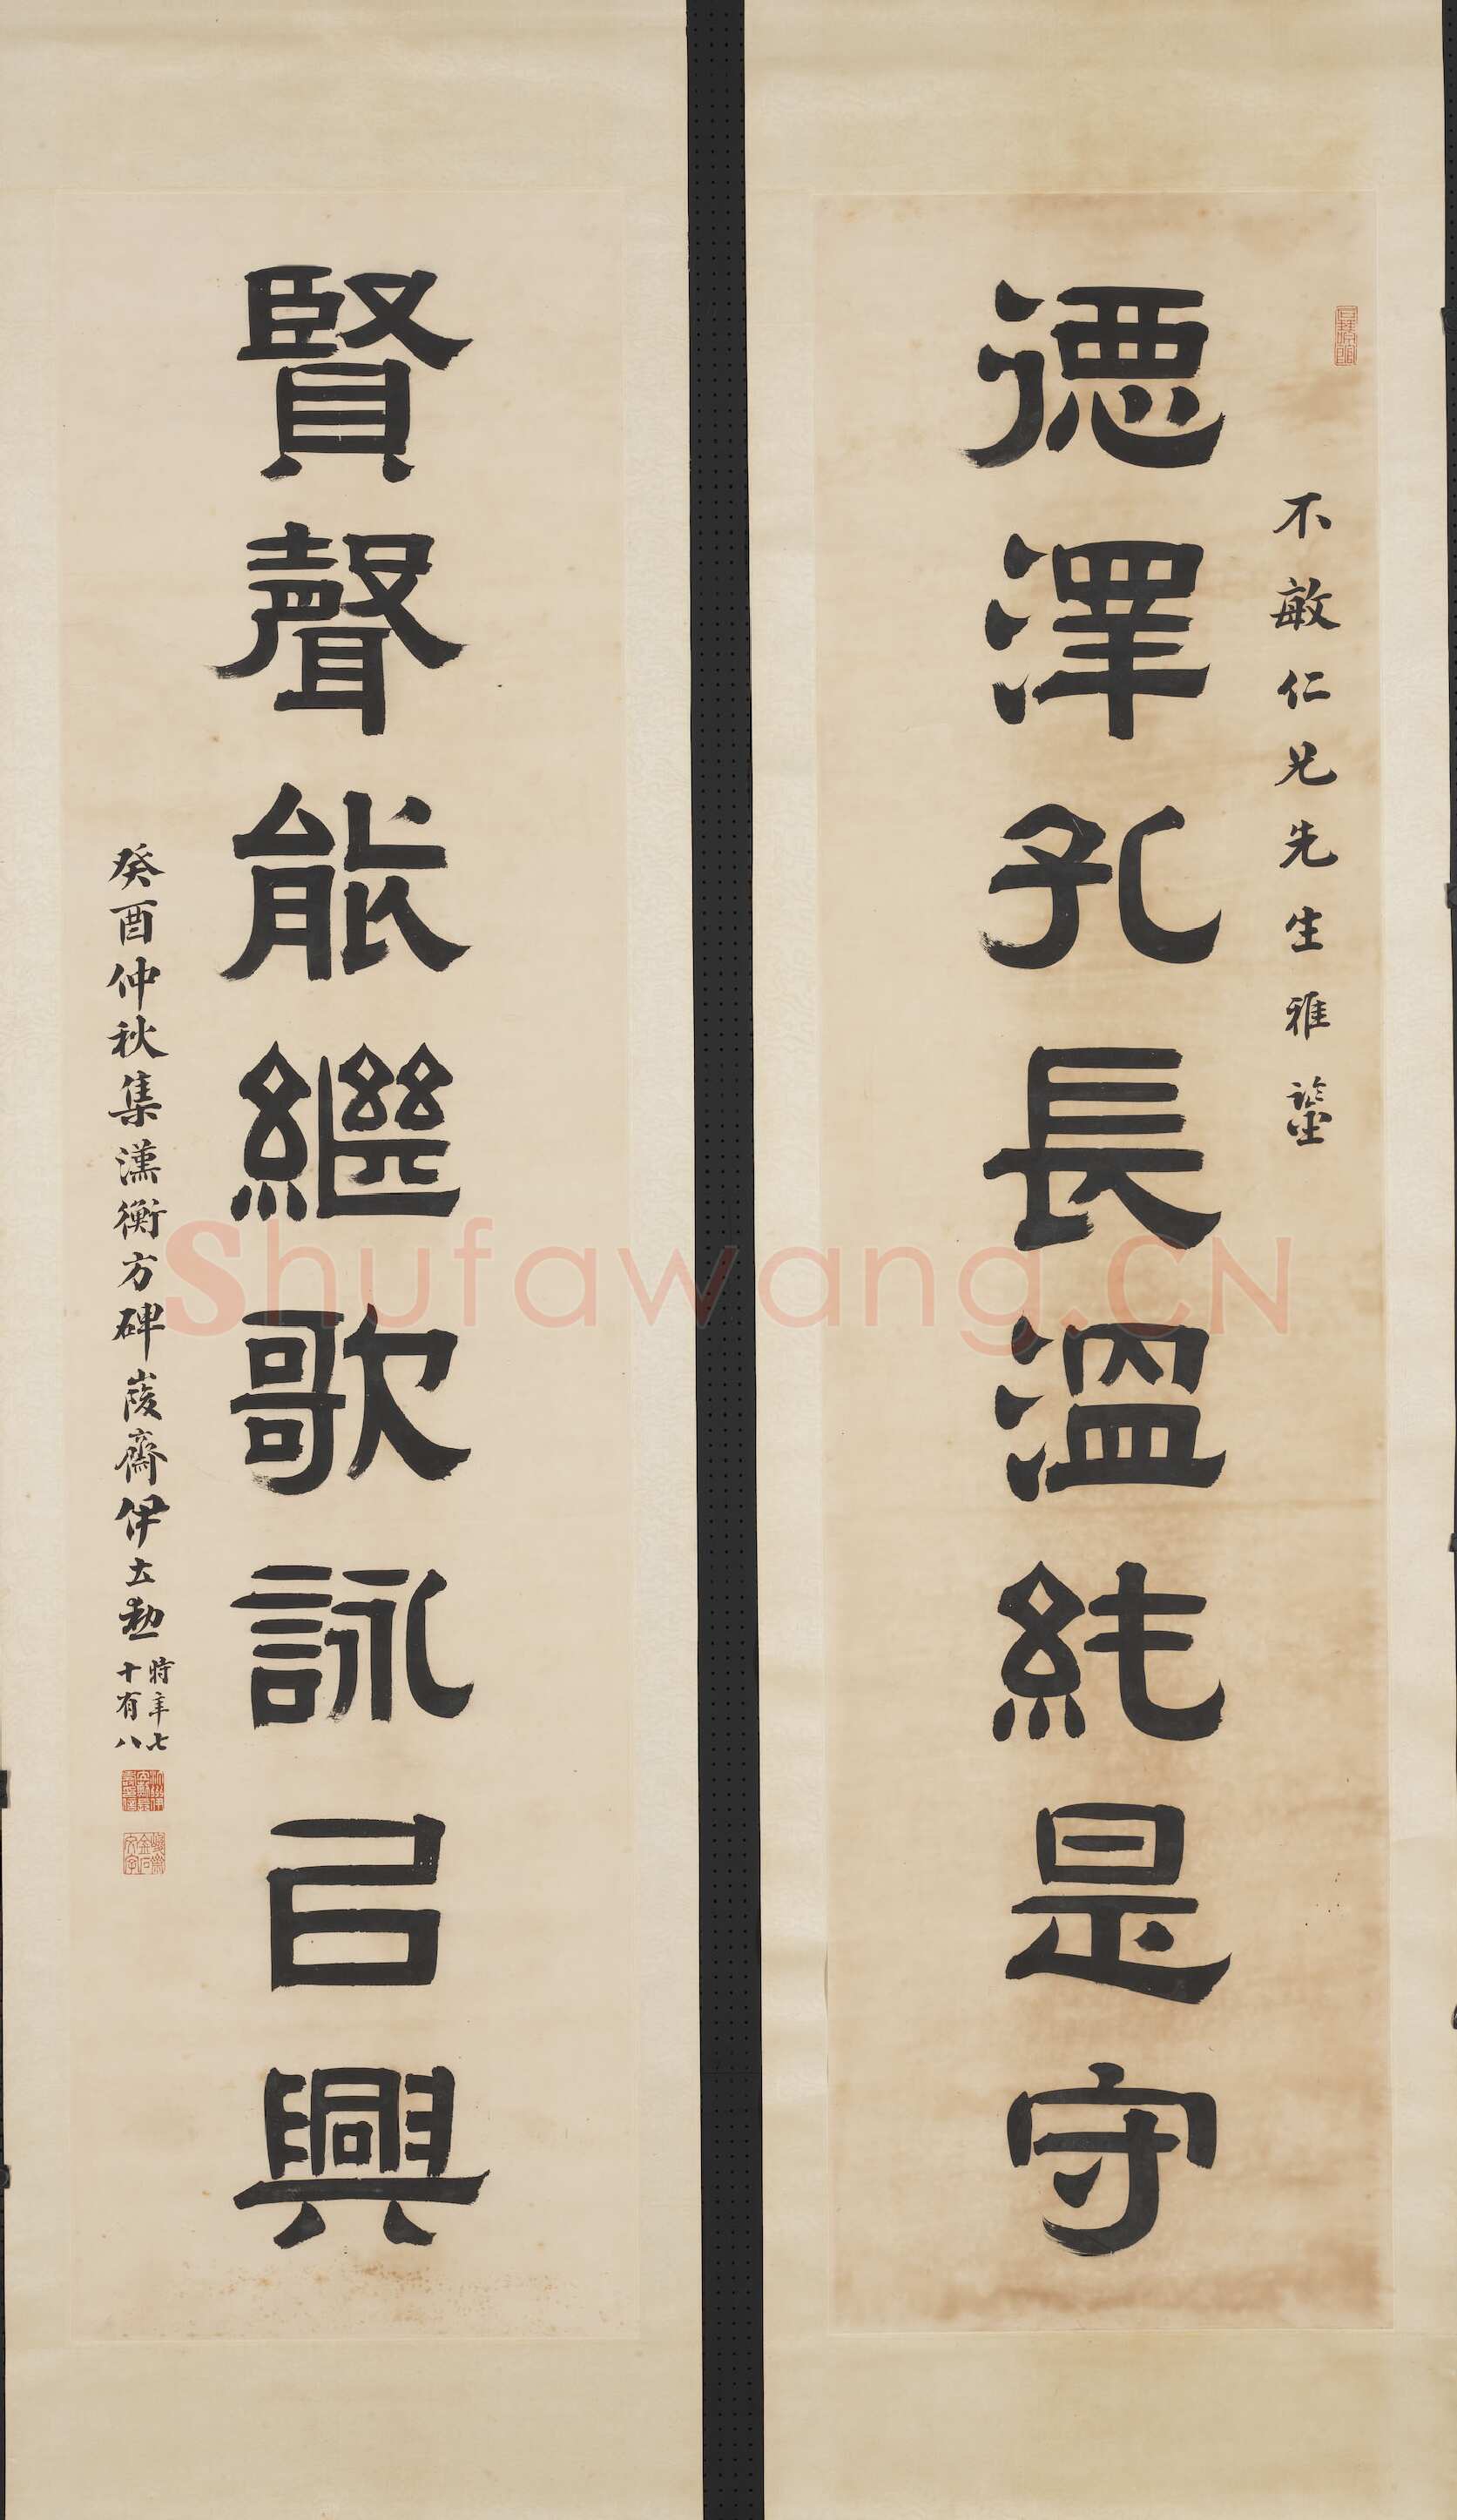 不敏仁兄先生雅鑒
德澤孔長溫純是守
賢聲能繼歌詠㠯興
癸酉仲秋集漢衡方碑峻齋伊立勳
時年七
十有八
Shufawang.CN